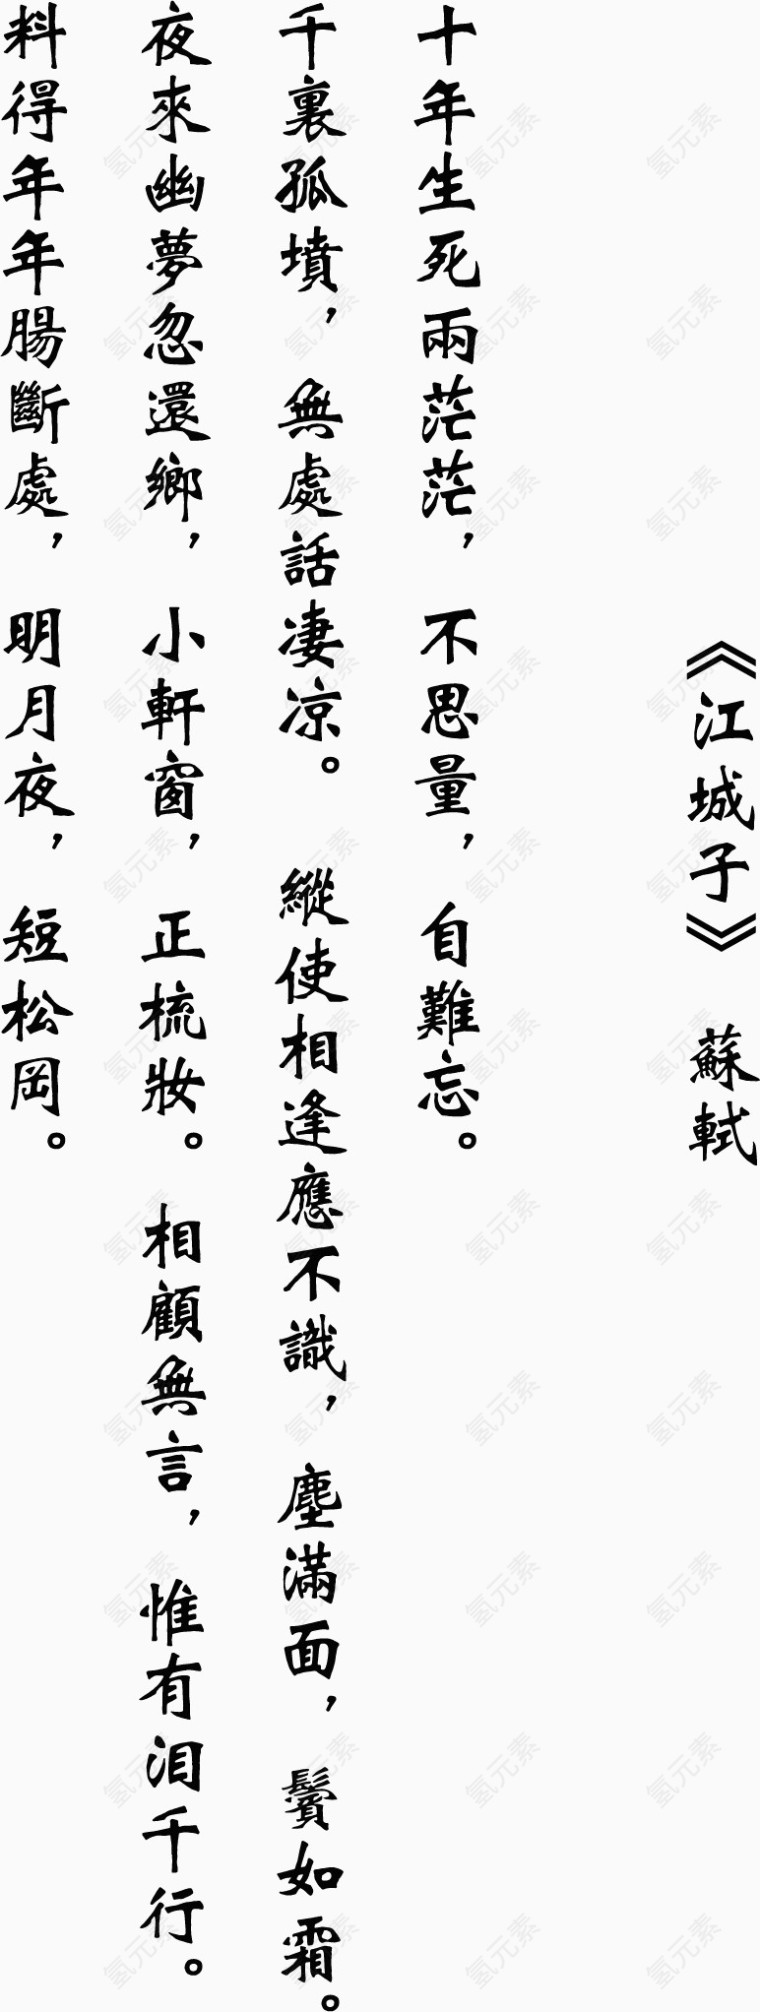 《江城子》 蘇軾
十年生死兩茫茫，不思量，自難忘。
千裏孤墳，無處話凄凉。縱使相逢應不識，塵滿面，鬢如霜。
夜來幽夢忽還鄉，小軒窗，正梳妝。相顧無言，惟有泪千行。
料得年年腸斷處，明月夜，短松岡。
氢元素